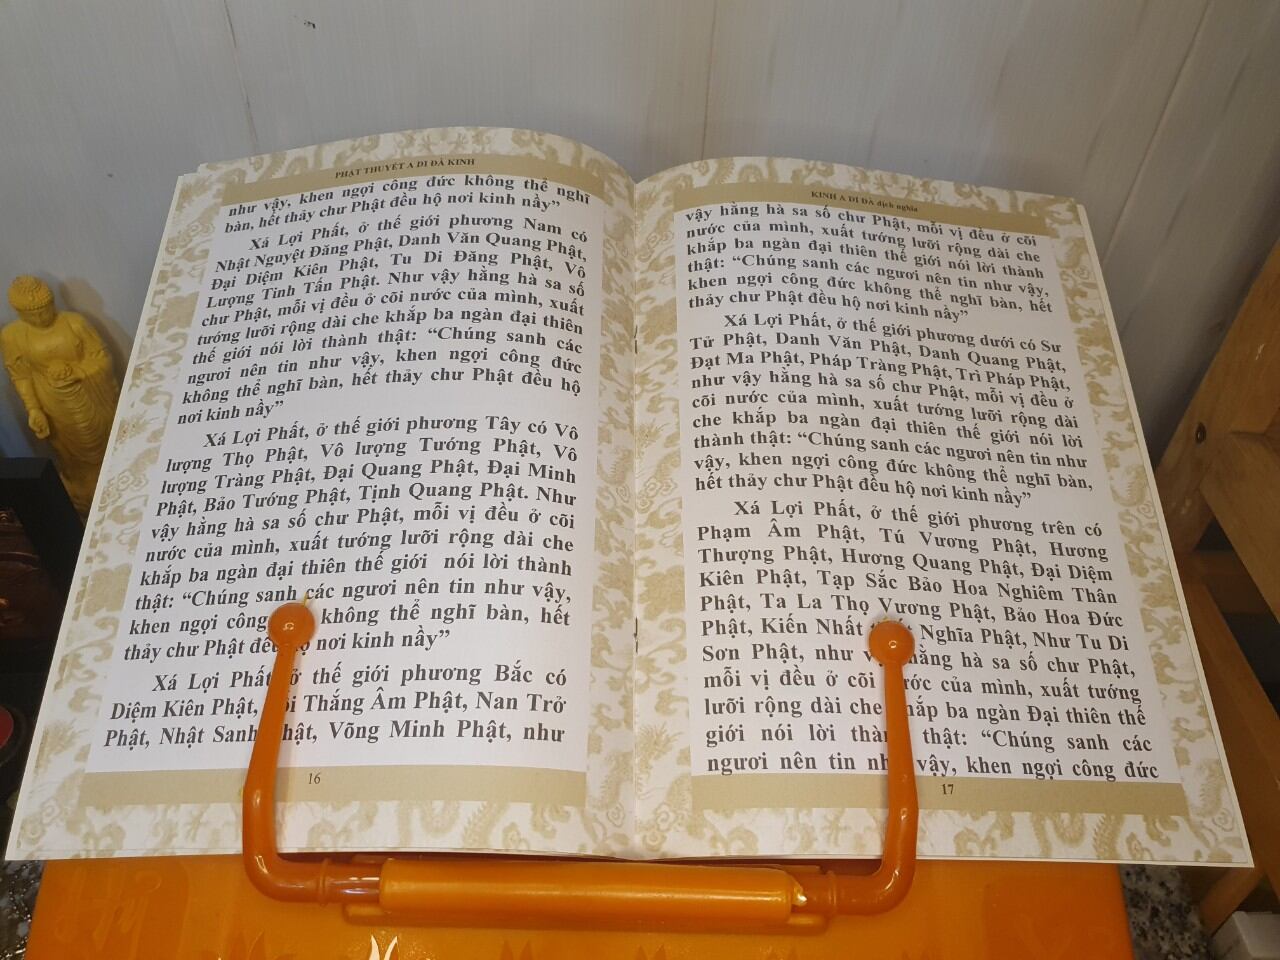 PHẬT THUYẾT A DI ĐÀ KINH
như vậy, khen ngợi công đức không thể nghĩ
bàn, hết thảy chư Phật đều hộ nơi kinh nầy”
Xá Lợi Phất, ở thế giới phương Nam có
Nhật Nguyệt Đăng Phật, Danh Văn Quang Phật,
Đại Diệm Kiên Phật, Tu Di Đăng Phật, Vô
Lượng Tinh Tấn Phật. Như vậy hằng hà sa số
chư Phật, mỗi vị đều ở cõi nước của mình, xuất
tướng lưỡi rộng dài che khắp ba ngàn đại thiên
thế giới nói lời thành thật: “Chúng sanh các
ngươi nên tin như vậy, khen ngợi công đức
không thể nghĩ bàn, hết thảy chư Phật đều hộ
nơi kinh nầy”
Xá Lợi Phất, ở thế giới phương Tây có Vô
lượng Thọ Phật, Vô lượng Tướng Phật, Vô
lượng Tràng Phật, Đại Quang Phật, Đại Minh
Phật, Bảo Tướng Phật, Tịnh Quang Phật. Như
vậy hằng hà sa số chư Phật, mỗi vị đều ở cõi
nước của mình, xuất tướng lưỡi rộng dài che
khắp ba ngàn đại thiên thế giới nói lời thành
thật: “Chúng sanh các ngươi nên tin như vậy,
khen ngợi công không thể nghĩ bàn, hết
thảy chư Phật đều hộ nơi kinh nầy”
Xá Lợi Phất ở thế giới phương Bắc có
Diệm Kiên Phật, Thắng Âm Phật, Nan Trở
Phật, Nhật Sanh Phật, Võng Minh Phật, như
16
KINH A DI ĐÀ dịch nghĩa
vậy hằng hà sa số chư Phật, mỗi vị đều ở cõi
nước của mình, xuất tướng lưỡi rộng dài che
khắp ba ngàn đại thiên thế giới nói lời thành
thật: “Chúng sanh các ngươi nên tin như vậy,
khen ngợi công đức không thể nghĩ bàn, hết
thảy chư Phật đều hộ nơi kinh nầy”
Xá Lợi Phất, ở thế giới phương dưới có Sư
Tử Phật, Danh Văn Phật, Danh Quang Phật,
Đạt Ma Phật, Pháp Tràng Phật, Trì Pháp Phật,
như vậy hằng hà sa số chư Phật, mỗi vị đều ở
cõi nước của mình, xuất tướng lưỡi rộng dài
che khắp ba ngàn đại thiên thế giới nói lời
thành thật: “Chúng sanh các ngươi nên tin như
vậy, khen ngợi công đức không thể nghĩ bàn,
hết thảy chư Phật đều hộ nơi kinh nầy”
Xá Lợi Phất, ở thế giới phương trên có
Phạm Âm Phật, Tú Vương Phật, Hương
Thượng Phật, Hương Quang Phật, Đại Diệm
Kiên Phật, Tạp Sắc Bảo Hoa Nghiêm Thân
Phật, Ta La Thọ Vương Phật, Bảo Hoa Đức
Phật, Kiến Nhất Nghĩa Phật, Như Tu Di
Sơn Phật, như vậy hằng hà sa số chư Phật,
mỗi vị đều ở cõi nước của mình, xuất tướng
lưỡi rộng dài che khắp ba ngàn Đại thiên thế
giới nói lời thành thật: “Chúng sanh các
ngươi nên tin như vậy, khen ngợi công đức
17